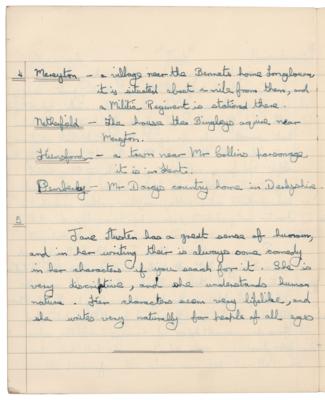 4 Meryton – a village near the Bennets home Longbourn
it is situated about a mile from them, and
a Militia Regiment is stationed there.
Netherfield – The house the Bingleys aquire near
Meryton.
Hunsford – a town near Mr Collins parsonage
it is in Kent.
Pemberley – Mr Darcys country home in Derbyshire
5
Jane Austen has a great sense of humour,
and in her writing their is always some comedy
in her characters if you search for it. She is
very discriptive, and she understands human
nature. Her characters seem very lifelike, and
she writes very naturally for people of all ages